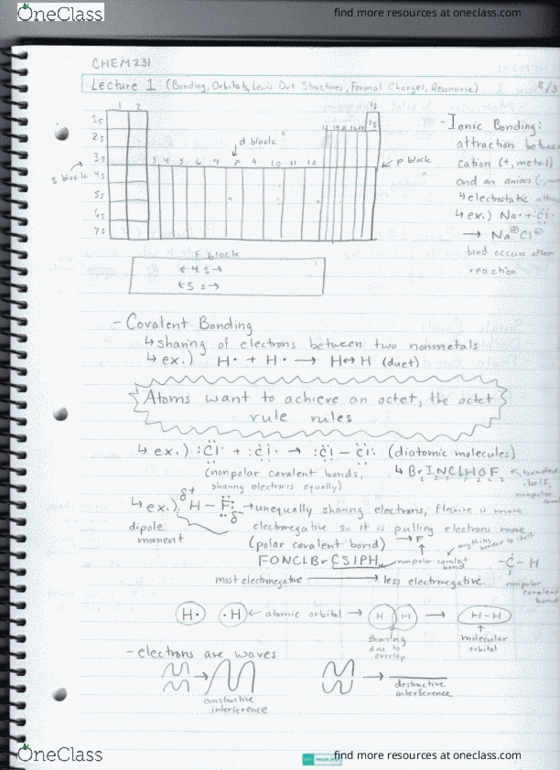 OneClass
find more resources at oneclass.com
CHEM231
Lecture 1 (Bonding, Orbitals, Lewis Dot Structures, Formal Charges, Resonance) 8/3
1 2
1s
2s
3s
4s
5s
6s
7s
s block
3 4 5 6 7 8 9 10 11 12
d block
1s
p block
F block
←4s→
←5s→
- Ionic Bonding:
attraction between
cation (+, metal)
and an anion (
↳ electrostatic
↳ ex.) Na· + :Cl:
→ Na⊕Cl⊖
bond occurs after
reaction
- Covalent Bonding
↳ sharing of electrons between two nonmetals
↳ ex.) H· + H· → H↔H (duet)
Atoms want to achieve an octet, the octet
rule rules
↳ ex.) :Cl· + :Cl· → :Cl – Cl: (diatomic molecules)
(nonpolar covalent bonds,
sharing electrons equally)
↳ BrINClHOF
↳ ex.) δ+ H – F: δ- → unequally sharing electrons, Flourine is more
dipole
moment
electronegative so it is pulling electrons more
(polar covalent bond) → F
FONCLBrCSIPH
nonpolar covalent bond
anything bonded to itself
-C-H
nonpolar
covalent
bond
most electronegative → less electronegative
H· ·H ← atomic orbital → H H → H-H
sharing
due to
overlap
molecular
orbital
- electrons are waves
constructive
interference
destructive
interference
OneClass
find more resources at oneclass.com